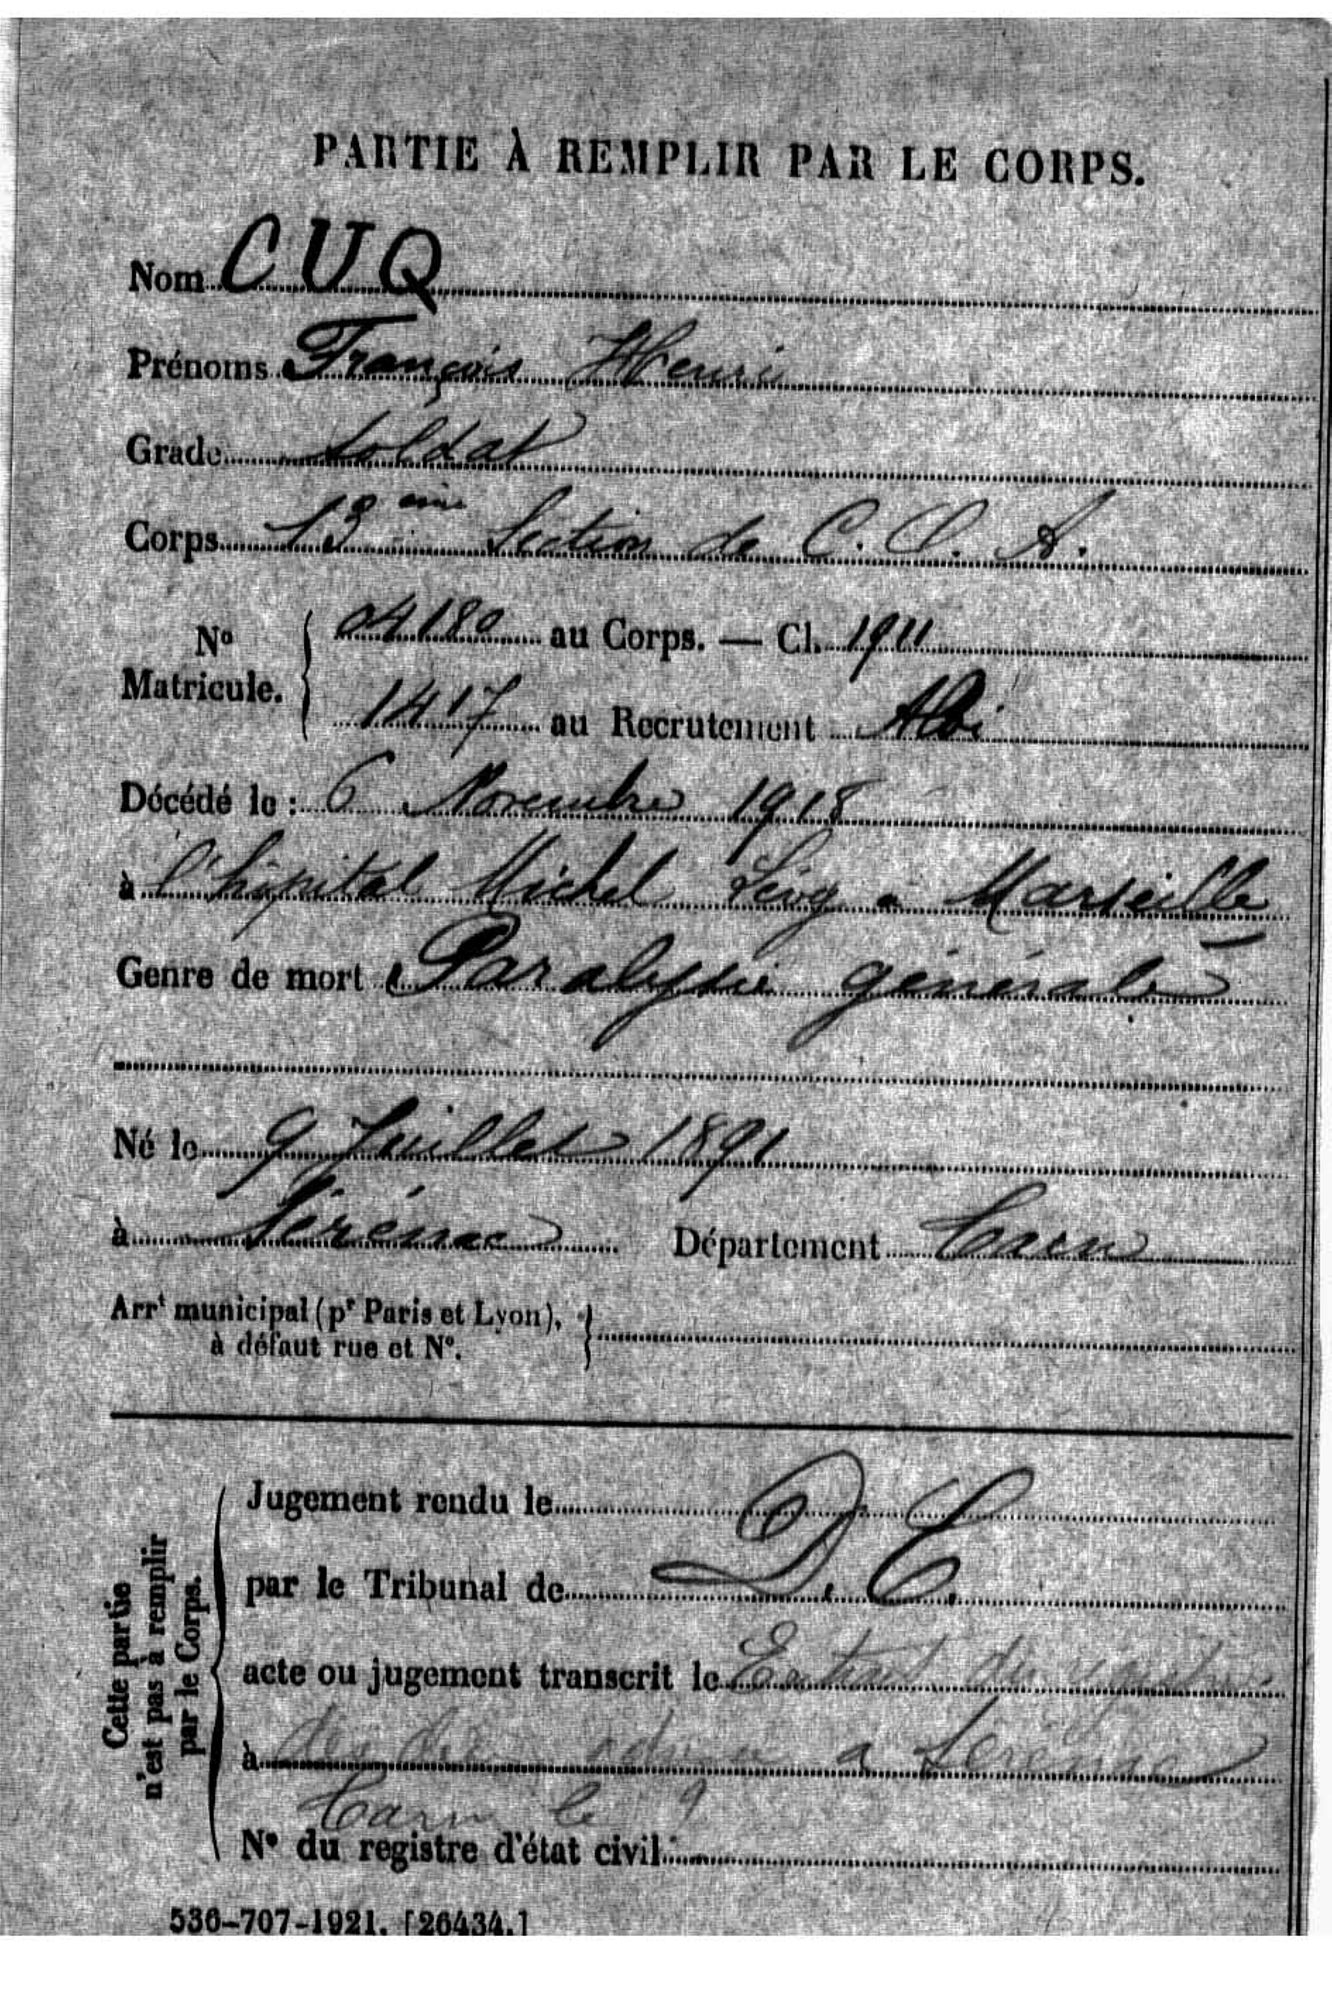 PARTIE À REMPLIR PAR LE CORPS.
Nom CUQ
Prénoms François Henri
Grade soldat
Corps 13 ème Section de C. O. A.
Nº Matricule. { 04180 au Corps. — Cl. 1911
1417 au Recrutement Albi
Décédé le : 6 Novembre 1918
à l'hôpital Michel Lévy à Marseille
Genre de mort Paralysie générale
Né le 9 Juillet 1891
à Sérénac Département Tarn
Arrt municipal (pr Paris et Lyon), }
à défaut rue et Nº.
Cette partie
n'est pas à remplir
par le Corps.
Jugement rendu le D. C.
par le Tribunal de
acte ou jugement transcrit le Extrait du registre
à des a Serenac
Tarn le 9
Nº du registre d'état civil
536-707-1921. [26434.]